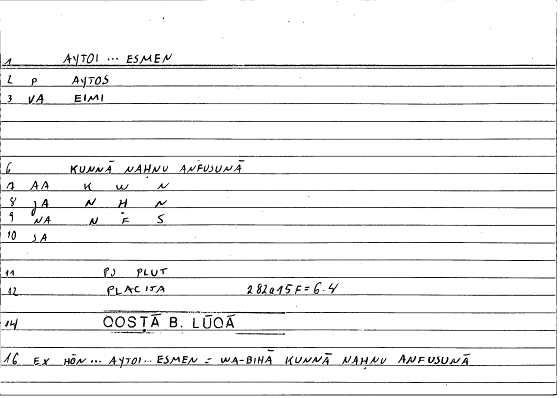 1 AYTOI ... ESMEN
2 P AYTOS
3 VA EIMI
6 KUNNĀ NAḤNU ANFUSUNĀ
7 AA K W N
8 JA N Ḥ N
9 NA N F S
10 JA
11 PJ PLUT
12 PLACITA 282a15F=6.4
14 QOSṬĀ B. LŪQĀ
16 EX HŌN ... AYTOI ... ESMEN = WA-BIHĀ KUNNĀ NAḤNU ANFUSUNĀ